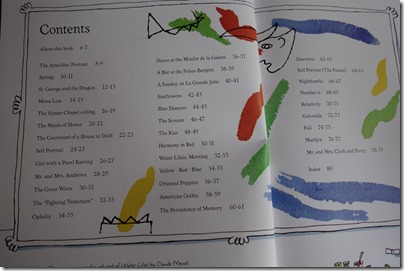 Contents
About this book 6-7
The Arnolfini Portrait 8-9
Spring 10-11
St. George and the Dragon 12-13
Mona Lisa 14-15
The Sistine Chapel ceiling 16-19
The Maids of Honor 20-21
The Courtyard of a House in Delft 22-23
Self Portrait 24-25
Girl with a Pearl Earring 26-27
Mr. and Mrs. Andrews 28-29
The Great Wave 30-31
The "Fighting Temeraire" 32-33
Ophelia 34-35
Dance at the Moulin de la Galette 36-37
A Bar at the Folies-Bergère 38-39
A Sunday on La Grande Jatte 40-41
Sunflowers 42-43
Blue Dancers 44-45
The Scream 46-47
The Kiss 48-49
Harmony in Red 50-51
Water Lilies, Morning 52-53
Yellow - Red - Blue 54-55
Oriental Poppies 56-57
American Gothic 58-59
The Persistence of Memory 60-61
Guernica 62-63
Self Portrait (The Frame) 64-65
Nighthawks 66-67
Number 6 68-69
Relativity 70-71
Golconda 72-73
Fall 74-75
Marilyn 76-77
Mr. and Mrs. Clark and Percy 78-79
Index 80
of Water Lilies by Claude Monet